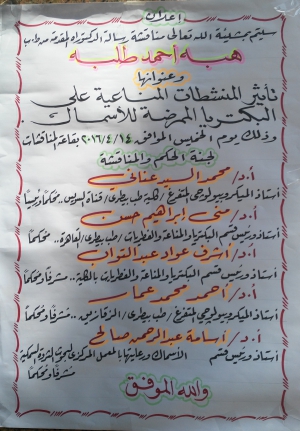 إعلان
سيتم بمشيئة الله تعالى مناقشة رسالة الدكتوراه المقدمة من ط.ب
هبه أحمد طلبه
وعنوانها
تأثير المنشطات المناعية على
البكتريا الممرضة للأسماك.
وذلك يوم الخميس الموافق ٢٠١٦/٤/١٤ بقاعة المناقشات
لجنة الحكم والمناقشة
أ.د/ محمد السيد عنانى
أستاذ الميكروبيولوجى المتفرغ / كلية طب بيطرى / قناة السويس.. محكماً ورئيساً
أ.د/ منى إبراهيم حسن
أستاذ ورئيس قسم البكتريا والمناعة والفطريات / طب بيطرى / القاهرة.. محكماً
أ.د/ أشرف عواد عبد التواب
أستاذ ورئيس قسم البكتريا والمناعة والفطريات بالكلية.. مشرفاً ومحكماً
أ.د/ أحمد محمد عمار
أستاذ الميكروبيولوجى المتفرغ / طب بيطرى / الزقازيق.. مشرفاً ومحكماً
أ.د/ أسامة عبد الرحمن صالح
أستاذ ورئيس قسم الأسماك ورعايتها بالمعمل المركزى لبحوث الثروة السمكية
مشرفاً ومحكماً
والله الموفق